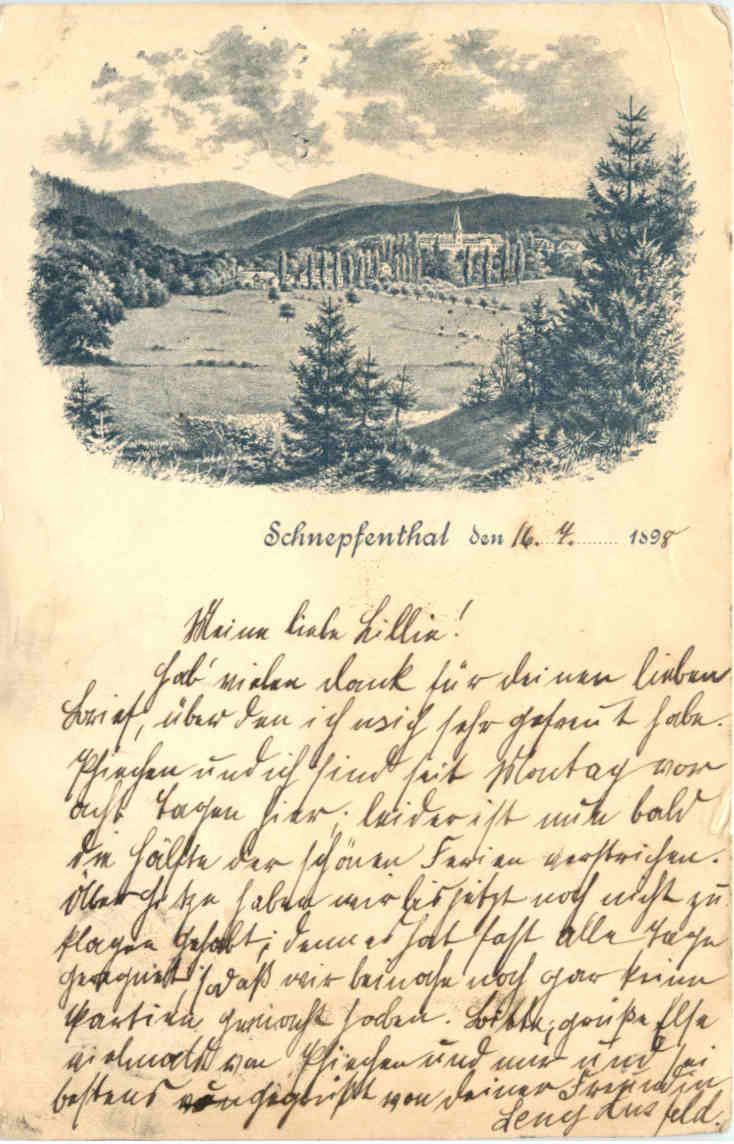 Schnepfenthal den 16. 7. 1898
Meine liebe Lillie!
Hab' vielen Dank für deinen lieben
Brief, über den ich mich sehr gefreut habe.
und ich sind seit Montag vor
acht Tagen hier; leider ist nun bald
die Hälfte der schönen Ferien verstrichen.
Über Hitze haben wir bis jetzt noch nicht zu
klagen gehabt; denn es hat fast alle Tage
geregnet, sodaß wir beinahe noch gar keine
Partien gemacht haben. Bitte, grüße Else
vielmals von und mir und sei
bestens von deiner Freundin
Leny